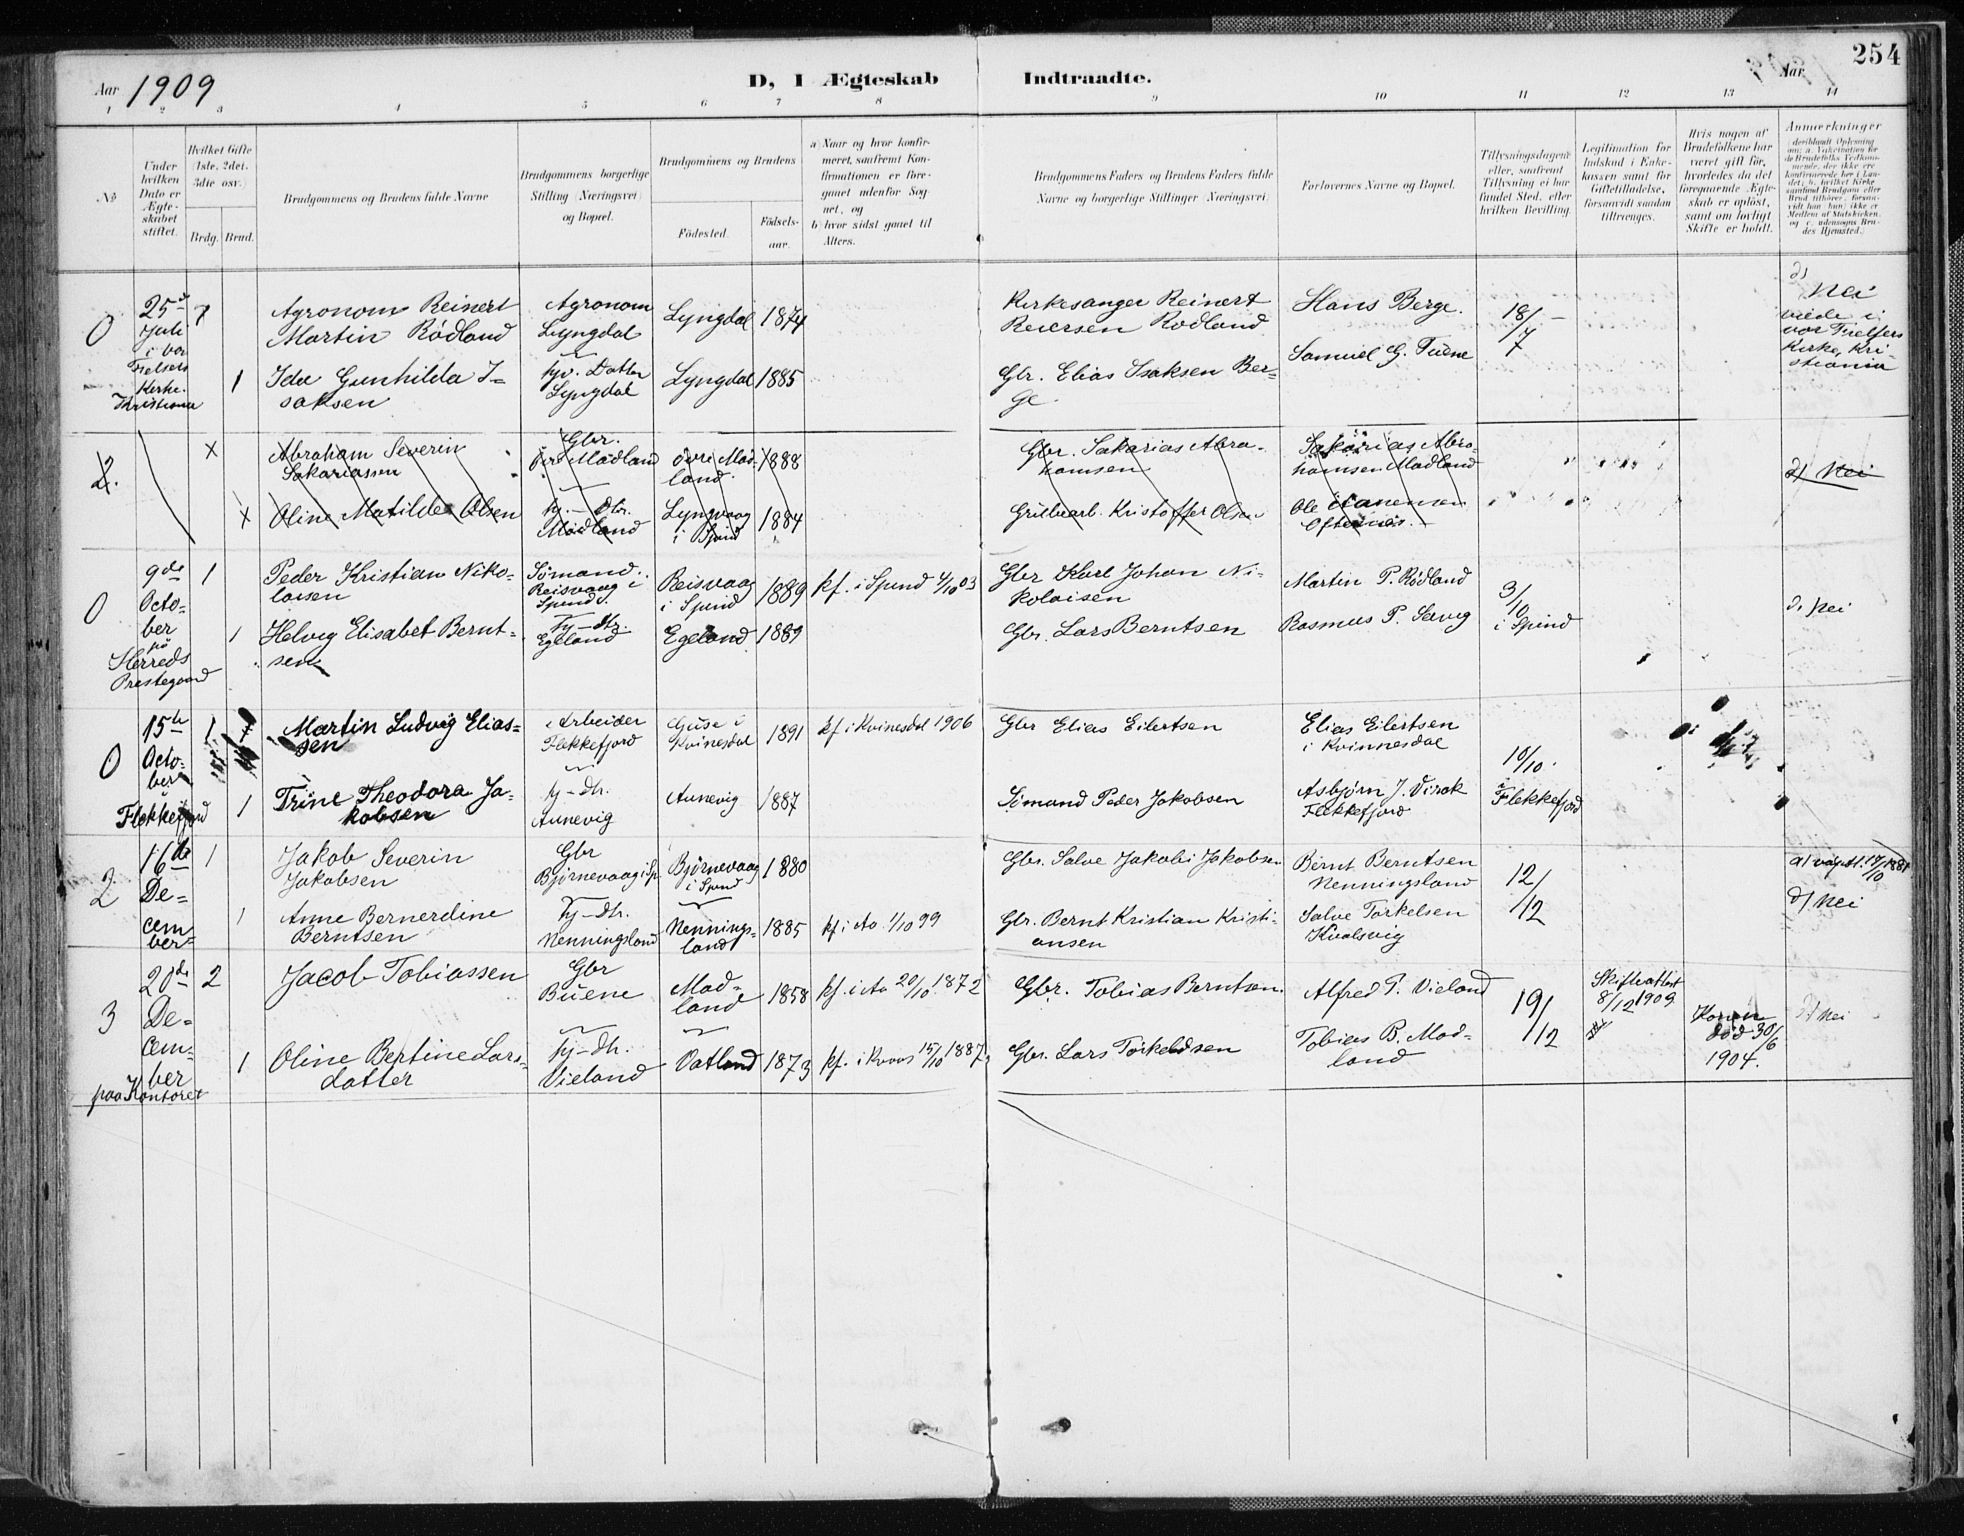 254
Aar 1909
D, I Ægteskab Indtraadte.
Aar
1 2 3 4 5 6 7 8 9 10 11 12 13 14
No
Under hvilken Dato er Ægteskabet stiftet.
Hvilket Gifte (1ste, 2det, 3die osv.)
Brdg. Brud.
Brudgommens og Brudens fulde Navne
Brudgommens borgerlige Stilling (Næringsvei) og Bopæl.
Brudgommens og Brudens
Fødested.
Fødselsaar.
a) Naar og hvor konfirmeret, saafremt Konfirmationen er foregaaet udenfor Sognet, og
b) hvor sidst gaaet til Alters.
Brudgommens Faders og Brudens Faders fulde Navne og borgerlige Stillinger (Næringsvei)
Forlovernes Navne og Bopæl.
Tillysningsdagene eller, saafremt Tillysning ei har fundet Sted, efter hvilken Bevilling.
Legitimation for Indskud i Enkekassen samt for Giftetilladelse, forsaavidt saadan tiltrænges.
Hvis nogen af Brudefolkene har været gift før, hvorledes da det foregaaende Ægteskab er opløst, samt om lovligt Skifte er holdt.
Anmærkninger
0
25de Juli i vor Frelsers Kirke. Kristiania
1
Agronom Reinert
Martin Rødland
Agronom
Lyngdal
Lyngdal 1874
Kirkesanger Reinert
Reiersen Rødland
Hans Berge.
18/7
d) Nei
viede i
vor Frelsers
Kirke, Kri-
stiania
1
Ida Gunhilda I-
saksen
hjv. Datter
Lyngdal
Lyngdal 1885
Gbr. Elias Isaksen Ber-
ge.
Samuel G. Tuene
2.
x
Abraham Severin
Sakariassen
Gbr.
Øvre Mødland
Øvre Mød-
land.
1888
Gbr. Sakarias Abra-
hamsen
Sakarias Abra-
hamsen Mødland
d) Nei
x
Oline Matilde Olsen
hj. - dtr.
Mødland
Lyngvaag
i Spind
1884
Kristoffer Olsen
Ole Hanensen
0
9de Octo-
ber
på
Herreds
Prestegaard
1
Peder Kristian Niko-
laisen
Sømand.
Reisvaag i
Spind.
Reisvaag
i Spind
1889
kf. i Spind 4/10 03
Gbr Karl Johan Ni-
kolaisen
Martin P. Rødland
3/10
i Spind
d. Nei
1
Helvig Elisabet Bernt-
sen
hj - dtr.
Egeland
Egeland 1889
Gbr. Lars Berntsen
Rasmus P. Sævig
0
15de
Octo-
ber
i
Flekkefjord
1
Martin Ludvig Elias-
sen
Arbeider
Flekkefjord
Guse i
Kvinesdal
1891
kf i Kvinesdal 1906
Gbr Elias Eilertsen
Elias Eilertsen
i Kvinnesdal
10/10.
i Flekkefjord
1
Trine Theodora Ja-
kobsen
hj - dtr.
Aunevig
Aunevig 1887
Sømand Peder Jakobsen
Asbjørn J. Virak
Flekkefjord
2
16de
De-
cem
ber
1
Jakob Severin
Jakobsen
Gbr
Bjørnevaag i Sp
Bjørnevaag
i Spind
1880
Gbr. Salve Jakobi Jakobsen
Bernt Berntsen
Nenningsland
12/12
d) Nei
1
Anne Bernerdine
Berntsen
hj - dtr.
Nenningsland
Nennings-
land
1885
kf i Aa 1/10 99
Gbr. Bernt Kristian Kristi-
ansen
Salve Torkelsen
Kvalsvig
3
20de
De-
cem-
ber
paa Kontoret
2
Jacob Tobiassen
Gbr
Buene
Mød-
land
1858
kf. i Aa 20/10 1872
Gbr. Tobias Berntsen.
Alfred T. Vieland
19/12
Skifteattest
8/12 1909
Konen
død 30/6
1904.
d) Nei
1
Oline Bertine Lars-
datter
hj - dtr.
Vieland
Oatland 1873
kf. i Kvaas 15/10 1887
Gbr. Lars Torkeldsen
Tobias B. Mød-
land